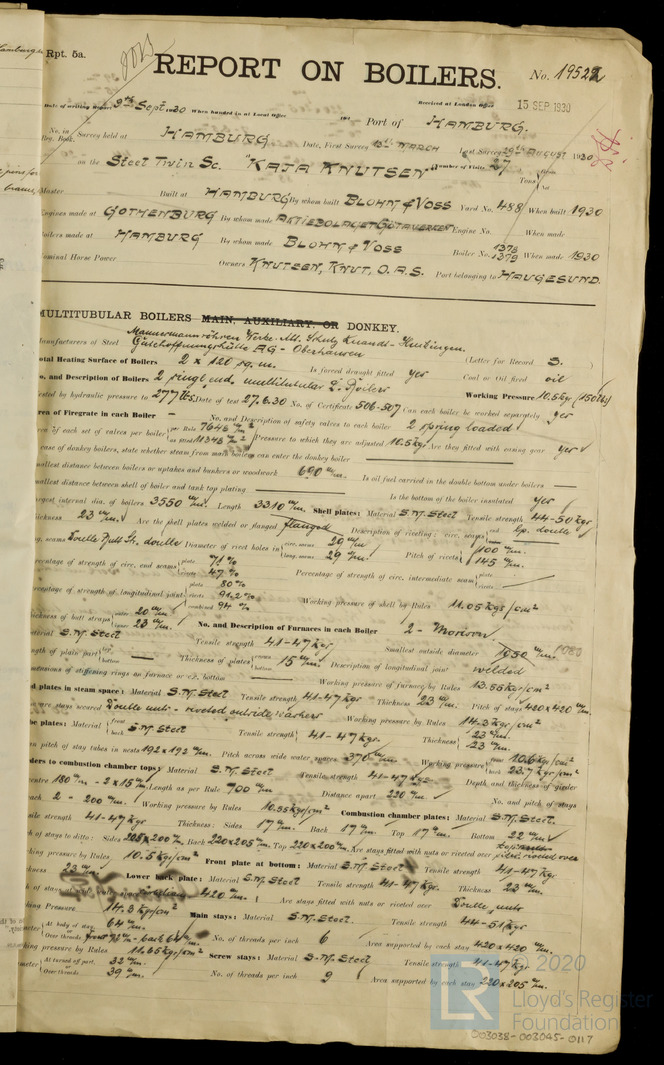 Rpt. 5a.
REPORT ON BOILERS.
No. 19522
Date of writing Report 9th Sept. 1930 When handed in at Local Office 19 Received at London Office 15 SEP 1930
Port of HAMBURG.
No. in Reg. Book. Survey held at HAMBURG Date, First Survey 13th MARCH Last Survey 29th AUGUST 1930
on the Steel Twin Sc. "KAJA KNUTSEN" (Number of Visits 27) Tons
Master Built at HAMBURG By whom built BLOHM & VOSS Yard No. 488 When built 1930
Engines made at GOTHENBURG By whom made AKTIEBOLAGET GÖTAVERKEN Engine No. When made
Boilers made at HAMBURG By whom made BLOHM & VOSS Boiler No. 1378 1379 When made 1930
Nominal Horse Power Owners KNUTSEN, KNUT, O.A.S. Port belonging to HAUGESUND.
MULTITUBULAR BOILERS MAIN, AUXILIARY, OR DONKEY.
Manufacturers of Steel
Gutehoffnungshütte AG - Oberhausen
(Letter for Record S.)
Total Heating Surface of Boilers 2 x 120 sq. m. Is forced draught fitted yes Coal or Oil fired oil
No. and Description of Boilers Working Pressure 10.5 kgs (150 lbs)
Tested by hydraulic pressure to 277 lbs. Date of test 27.6.30 No. of Certificate 506-507 Can each boiler be worked separately yes
Area of Firegrate in each Boiler — No. and Description of safety valves to each boiler 2 spring loaded
Area of each set of valves per boiler Pressure to which they are adjusted 10.5 kgs Are they fitted with easing gear yes
In case of donkey boilers, state whether steam from main boilers can enter the donkey boiler
Smallest distance between boilers or uptakes and bunkers or woodwork 690 m/m. Is oil fuel carried in the double bottom under boilers
Smallest distance between shell of boiler and tank top plating Is the bottom of the boiler insulated yes
Largest internal dia. of boilers 3550 m/m. Length 3310 m/m Shell plates: Material S.M. Steel Tensile strength 44-50 kgs
Thickness 23 m/m. Are the shell plates welded or flanged flanged Description of riveting: circ. seams
long. seams Diameter of rivet holes in circ. seams 29 m/m long. seams 29 m/m. Pitch of rivets 100 m/m. 145 m/m.
Percentage of strength of circ. end seams plate 71% rivets 47% Percentage of strength of circ. intermediate seam plate rivets
Percentage of strength of longitudinal joint plate 80% rivets 91.2% combined 94% Working pressure of shell by Rules 11.05 kgs/cm²
Thickness of butt straps outer 20 m/m inner 23 m/m. No. and Description of Furnaces in each Boiler 2 - Morison
Material S.M. Steel Tensile strength 41-47 kgs Smallest outside diameter 1050 m/m. 1080
Length of plain part top bottom — Thickness of plates crown bottom 15 m/m. Description of longitudinal joint welded
Dimensions of stiffening rings on furnace or c.c. bottom — Working pressure of furnace by Rules 13.55 kgs/cm²
End plates in steam space: Material S.M. Steel Tensile strength 41-47 kgs Thickness 23 m/m. Pitch of stays 420 x 420 m/m.
How are stays secured Double nuts - riveted outside washers Working pressure by Rules 14.3 kg/cm²
Tube plates: Material front back S.M. Steel Tensile strength 41-47 kgs. Thickness 23 m/m. 23 m/m.
Mean pitch of stay tubes in nests 192 x 192 m/m. Pitch across wide water spaces 370 m/m. Working pressure front 10.6 kg/cm² back 23.7 kgs/cm²
Girders to combustion chamber tops: Material S.M. Steel Tensile strength 41-47 kgs Depth and thickness of girder
at centre 180 m/m - 2 x 15 m/m Length as per Rule 700 m/m Distance apart 220 m/m. No. and pitch of stays
in each 2 - 200 m/m. Working pressure by Rules 10.55 kgs/cm² Combustion chamber plates: Material S.M. Steel.
Tensile strength 41-47 kgs Thickness: Sides 17 m/m. Back 17 m/m. Top 17 m/m. Bottom 22 m/m
Pitch of stays to ditto: Sides 225 x 200 m/m. Back 220 x 205 m/m. Top 220 x 200 m/m. Are stays fitted with nuts or riveted over
Working pressure by Rules 10.5 kgs/cm² Front plate at bottom: Material S.M. Steel Tensile strength 41-47 kgs.
Thickness 23 m/m. Lower back plate: Material S.M. Steel Tensile strength 41-47 kgs. Thickness 23 m/m.
Pitch of stays 420 m/m. Are stays fitted with nuts or riveted over Double nuts
Working Pressure 14.3 kgs/cm² Main stays: Material S.M. Steel. Tensile strength 44-51 kgs
Diameter At body of stay 64 m/m. Over threads No. of threads per inch 6 Area supported by each stay 420 x 420 m/m.
Working pressure by Rules 11.65 kgs/cm² Screw stays: Material S.M. Steel Tensile strength 41-47 kgs
Diameter At turned off part 32 m/m. Over threads 39 m/m. No. of threads per inch 9 Area supported by each stay 220 x 205 m/m.
© 2020
LR
Lloyd's Register
Foundation
003038-003045-0117